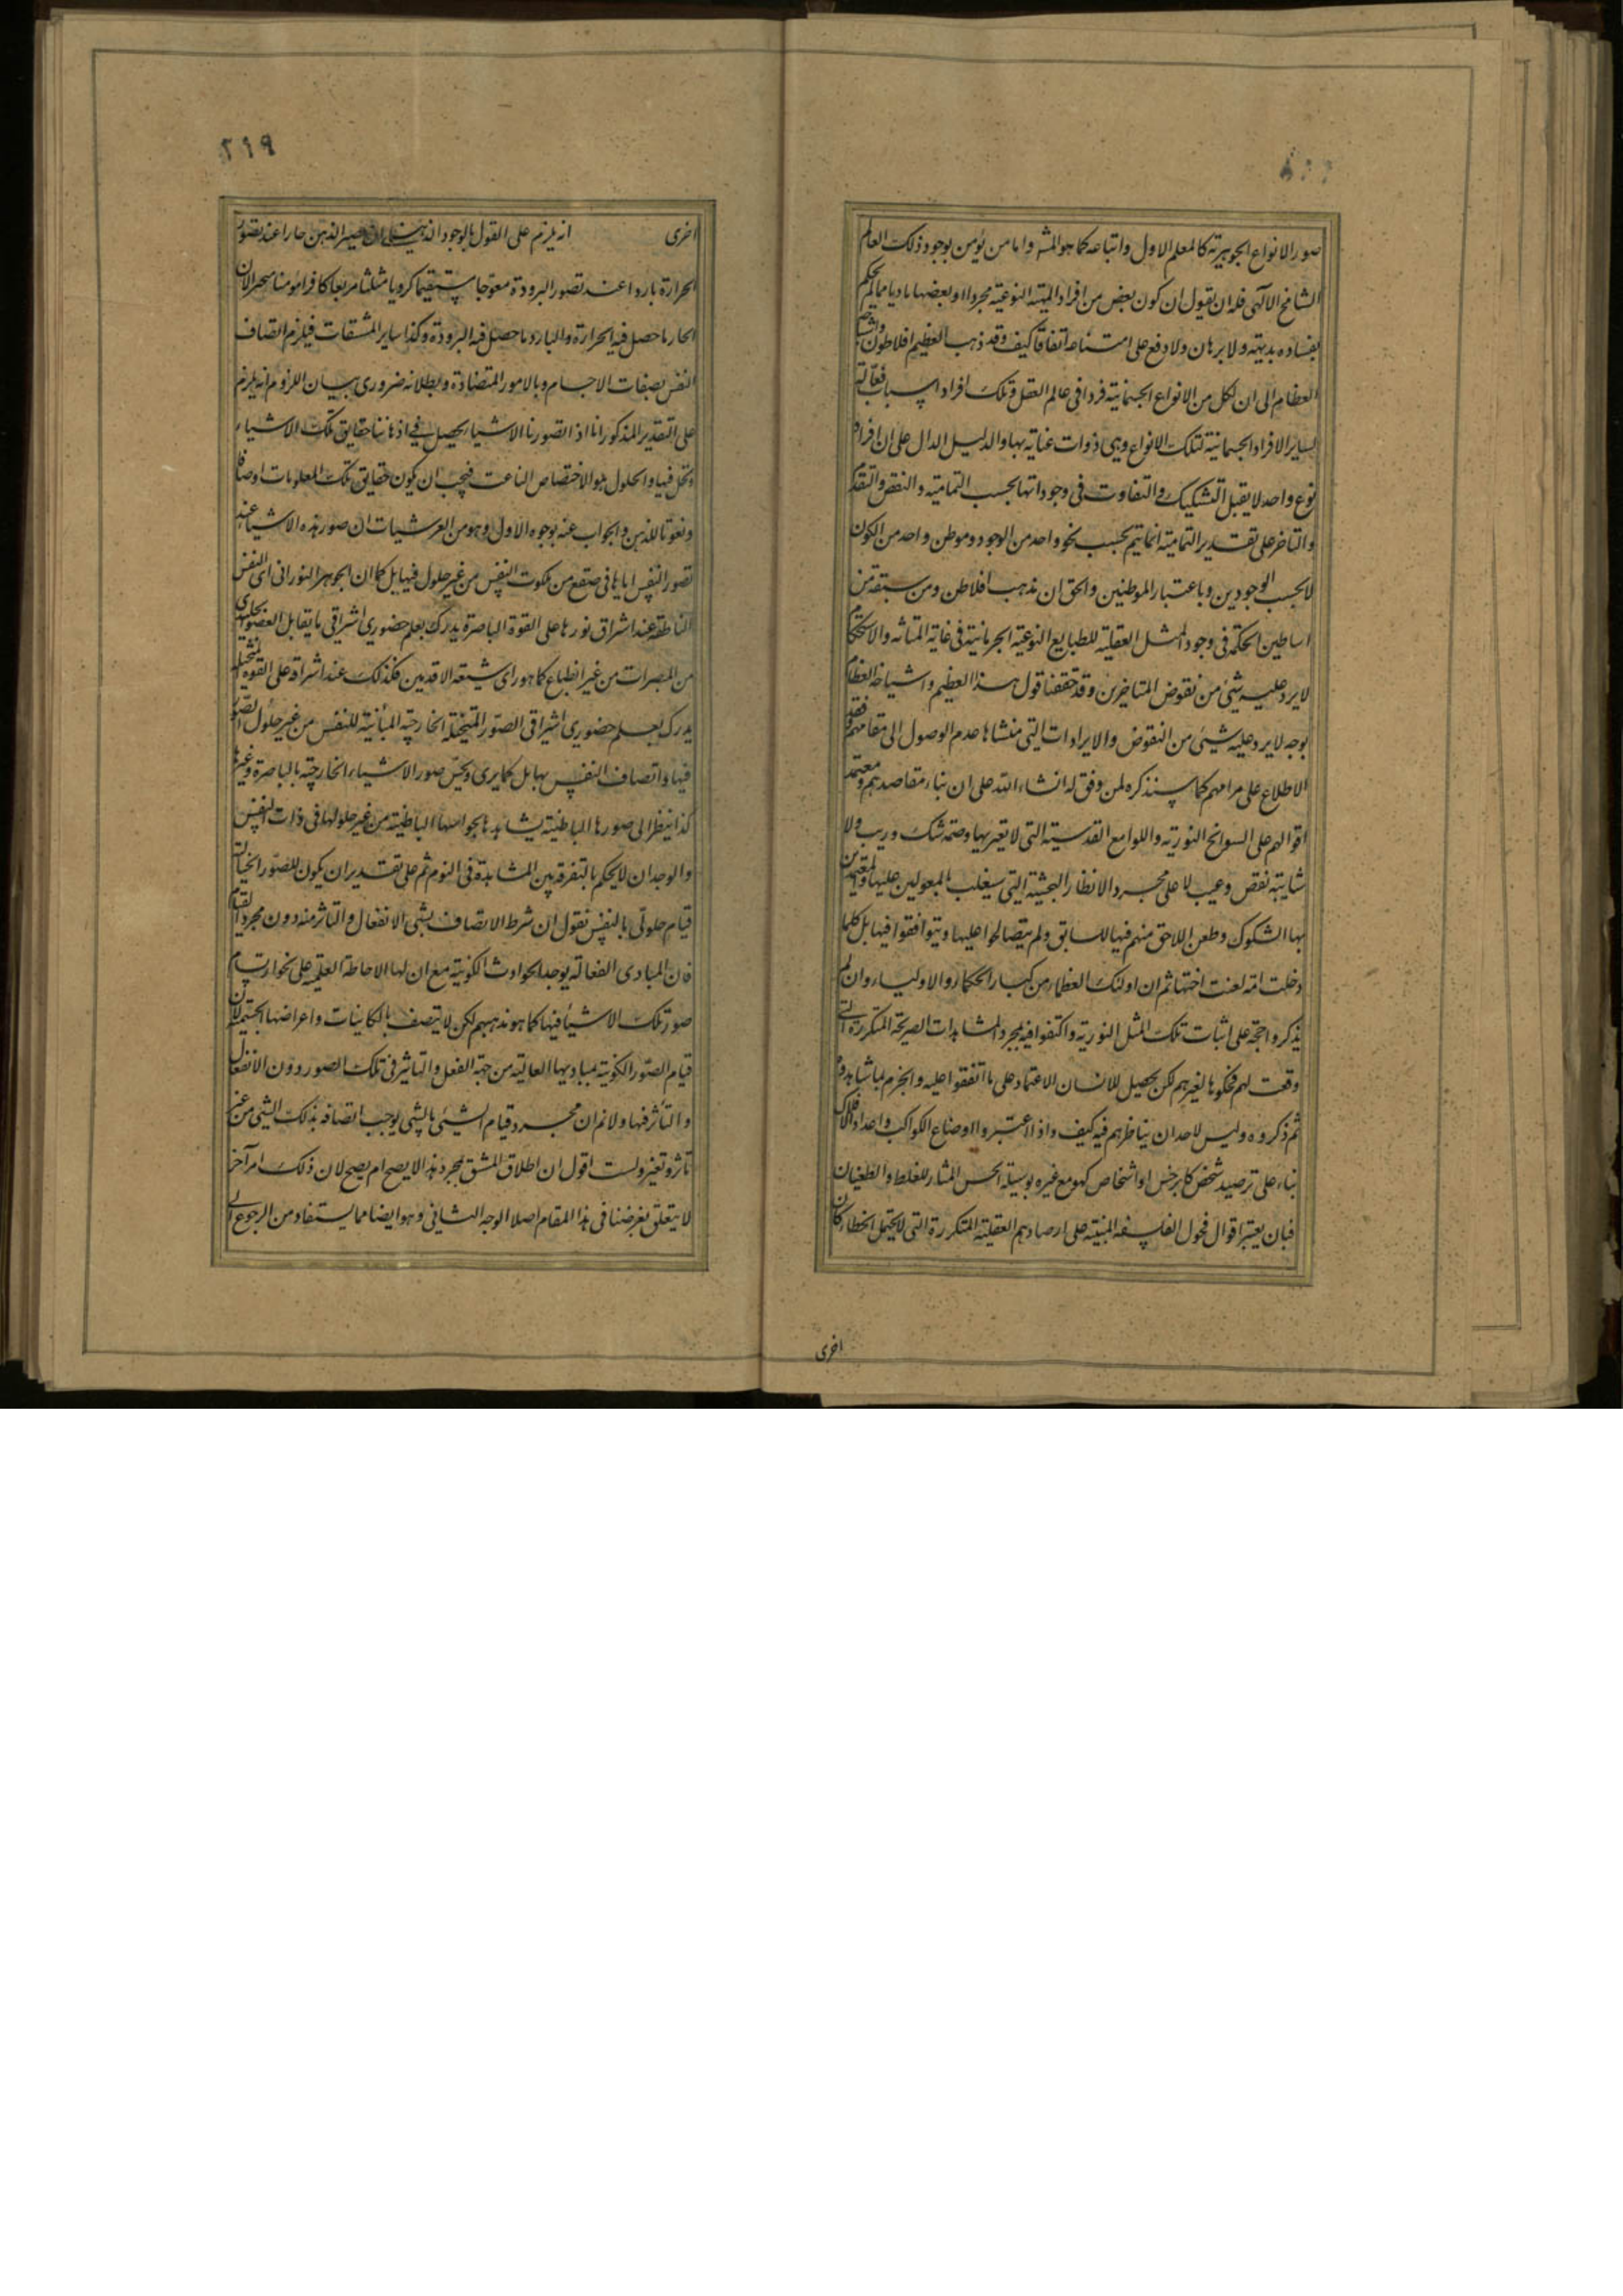 صور الانواع الجوهرية كالمعلم الاول واتباعه كما هو المش واما من يؤمن بوجود ذلك العالم
الشامخ الالهى فله ان يقول ان كون بعض من افراد المهية النوعية مجردا وبعضها ماديا مما لم يحكم
بفساده بديهة ولا برهان ولا وقع على امتناعه اتفاق كيف وقد ذهب العظيم افلاطون واشياخه
العظام الى ان لكل من الانواع الجسمانية فردا فى عالم العقل وتلك افراد اسباب فعالة
لساير الافراد الجسمانية لتلك الانواع وهى ذوات عناية بها والدليل الدال على ان افراد
نوع واحد لا يقبل التشكيك والتفاوت فى وجوداتها بحسب التمامية والنقص والتقدم
والتاخر على تقدير التمامية انما يتم بحسب نحو واحد من الوجود وموطن واحد من الكون
لا بحسب الوجودين وباعتبار الموطنين والحق ان مذهب افلاطن ومن سبقه من
اساطين الحكمة فى وجود المثل العقلية للطبايع النوعية الجرمانية فى غاية المتانة والاستحكام
لا يرد عليه شئ من نقوض المتاخرين وقد حققنا قول هذا العظيم واشياخه العظام
بوجه لا يرد عليه شئ من النقوض والايرادات التى منشاها عدم الوصول الى مقامهم وفقد
الاطلاع على مرامهم كما سنذكره لمن وفق له انشاء الله على ان بناء مقاصدهم ومعتمد
اقوالهم على السوانح النورية واللوامع القدسية التى لا يعتريها وصمة شك وريب ولا
شايبة نقص وعيب لا على مجرد الانظار البحثية التى سيلعب بالمعولين عليها والمعتمدين
بها الشكوك وطعن اللاحق منهم فيها للسابق ولم يتصالحوا عليها ويتوافقوا فيها بل كلما
دخلت امة لعنت اختها ثم ان اولئك العظماء من كبار الحكماء والاولياء وان لم
يذكروا حجة على اثبات تلك المثل النورية واكتفوا فيه بمجرد المشاهدات الصريحة المتكررة التى
وقعت لهم فحكوها لغيرهم لكن يحصل للانسان الاعتماد على ما اتفقوا عليه والجزم بما شاهدوه
ثم ذكروه وليس لاحد ان يناظرهم فيه كيف واذا اعتبروا اوضاع الكواكب واعداد الافلاك
بناء على ترصيد شخص كابرخس او اشخاص كهو مع غيره بوسيلة الحس المثار للغلط والطغيان
فبان يعتبر اقوال فحول الفلسفة المبنية على ارصادهم العقلية المتكررة التى لا يحتمل الخطاء كان
اخرى
٢١٩
اخرى انه يلزم على القول بالوجود الذهنى ان يصير الذهن حارا عند تصور
الحرارة باردا عند تصور البرودة معوجا مستقيما كرويا مثلثا مربعا كافرا مؤمنا متحيزا لان
الحار ما حصل فيه الحرارة والبارد ما حصل فيه البرودة وكذا ساير المشتقات فيلزم اتصاف
النفس بصفات الاجسام وبالامور المتضادة وبطلانه ضرورى بيان اللزوم انه يلزم
على التقدير المذكور انا اذا تصورنا الاشياء يحصل فى اذهاننا حقايق تلك الاشياء
وتحل فيها والحلول هو الاختصاص الناعت فيجب ان يكون حقايق تلك المعلومات اوصافا
ونعوتا للذهن والجواب عنه بوجوه الاول وهو من العرشيات ان صور هذه الاشياء عند
تصور النفس اياها فى صقع من ملكوت النفس من غير حلول فيها بل كما ان الجوهر النورانى اى النفس
الناطقة عند اشراق نورها على القوة الباصرة يدرك بعلم حضورى اشراقى ما يقابل العضو الجليدى
من المبصرات من غير انطباع كما هو راى شيعة الاقدمين فكذلك عند اشراقه على القوة المتخيلة
يدرك بعلم حضورى اشراقى الصور المتخيلة الخارجية المباينة للنفس من غير حلول الصور
فيها واتصاف النفس بها بل كما يرى ويحس صور الاشياء الخارجية بالباصرة وغيرها
كذا ينظر الى صورها الباطنية يشاهدها بحواسها الباطنية من غير حلولها فى ذات النفس
والوجدان لا يحكم بالتفرقة بين المشاهدة فى النوم ثم على تقدير ان يكون للصور الخيالية
قيام حلولى بالنفس نقول ان شرط الاتصاف بشئ الانفعال والتاثر منه دون مجرد القيام
فان المبادى الفعالة يوجد الحوادث الكونية مع ان لها الاحاطة العلمية على نحو ارتسام
صور تلك الاشياء فيها كما هو مذهبهم لكن لا يتصف بالكاينات واعراضها الجسمية لان
قيام الصور الكونية بمباديها العالية من جهة الفعل والتاثير فى تلك الصور دون الانفعال
والتأثر فيها ولا نم ان مجرد قيام الشئ بالشئ يوجب اتصافه بذلك الشئ من غير
تاثر وتغير ولست اقول ان اطلاق المشتق بمجرد هذا لا يصح ام يصح لان ذلك امر آخر
لا يتعلق بغرضنا فى هذا المقام اصلا الوجه الثانى وهو ايضا مما يستفاد من الرجوع الى